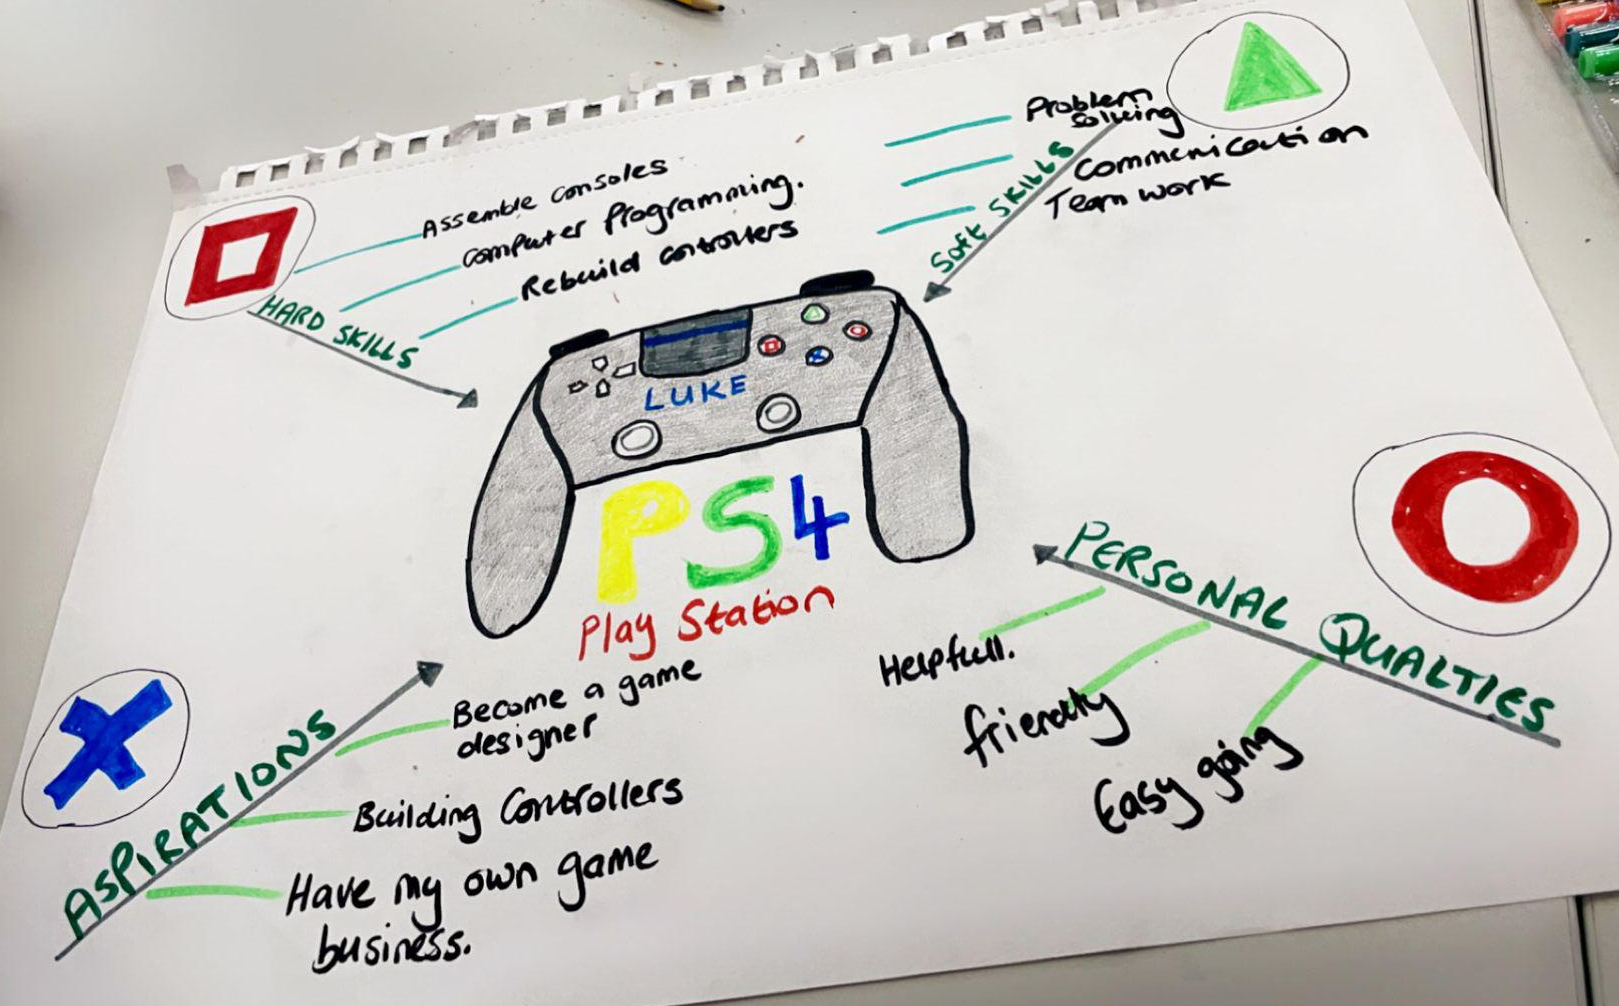 Assemble consoles
Computer Programming.
Rebuild controllers
HARD SKILLS
Problem
Solving
Communication
Team work
Soft SKILLS
LUKE
PS4
Play Station
PERSONAL QUALTIES
Helpfull.
friendly
Easy going
ASPIRATIONS
Become a game
designer
Building Controllers
Have my own game
business.